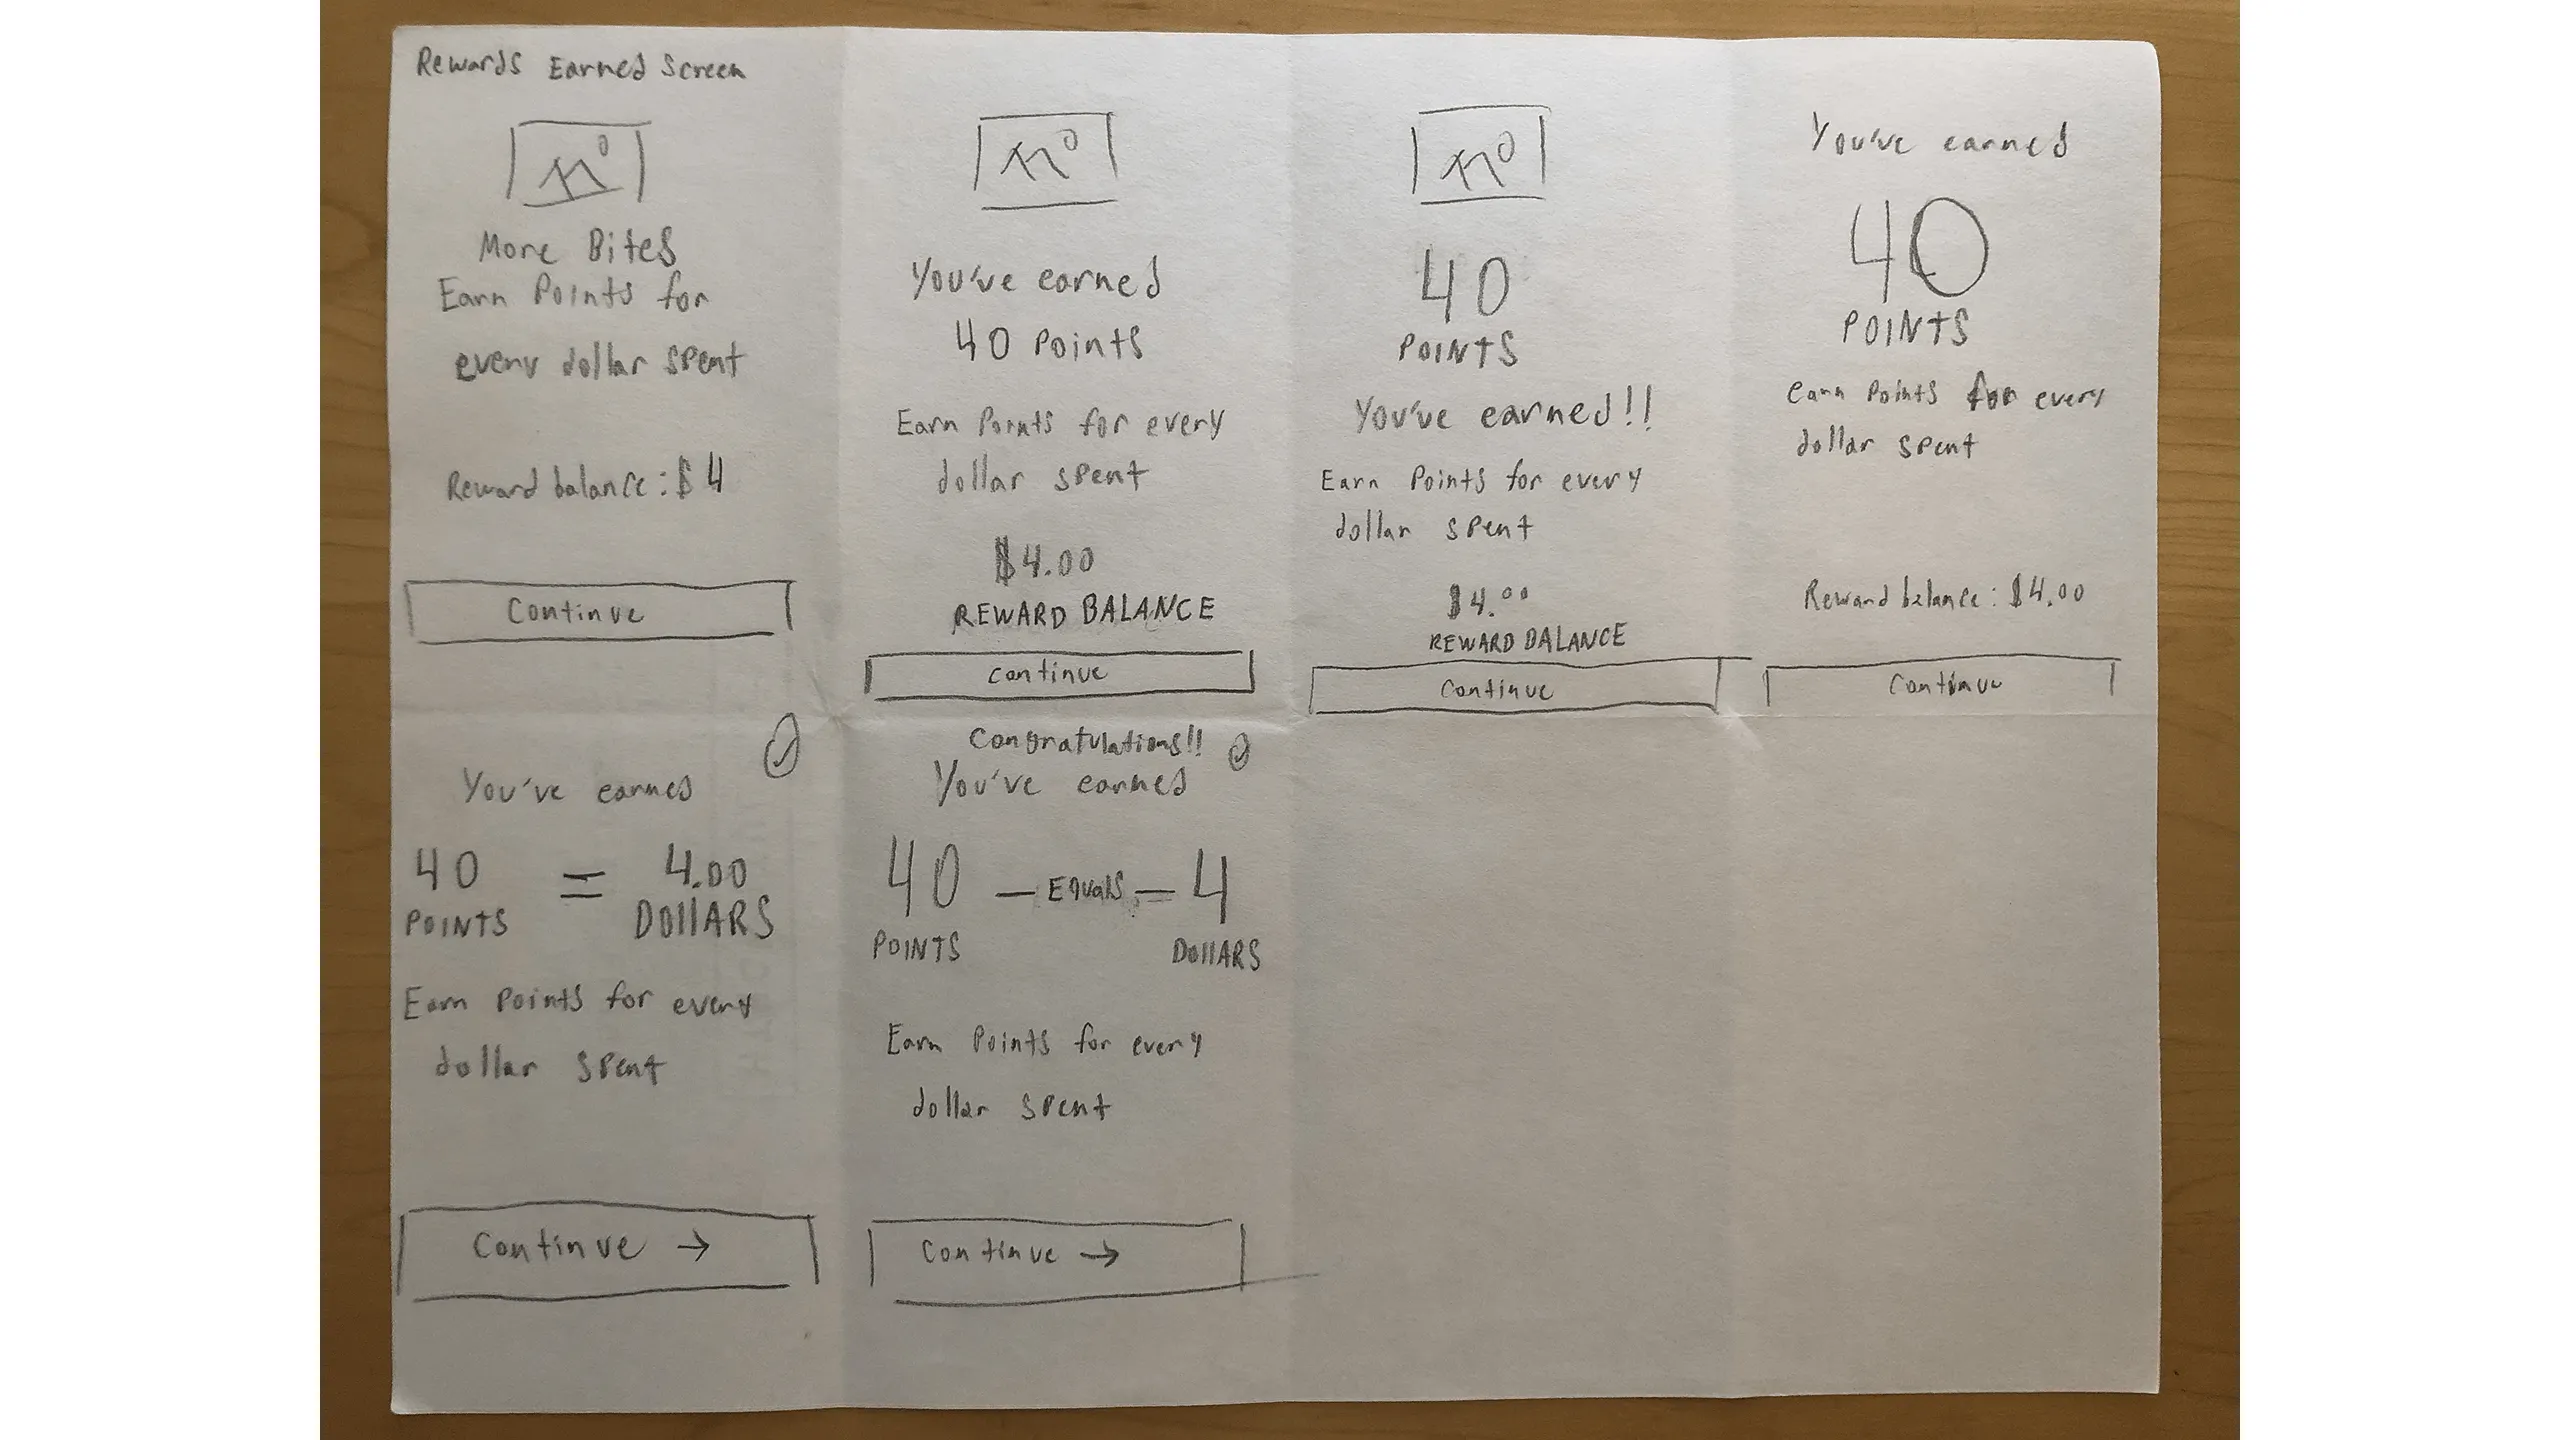 Rewards Earned Screen
More Bites
Earn Points for
every dollar spent
Reward balance: $4
Continue
You've earned
40 Points
Earn Points for every
dollar spent
$4.00
REWARD BALANCE
continue
40
POINTS
You've earned!!
Earn Points for every
dollar spent
$4.00
REWARD BALANCE
Continue
You've earned
40
POINTS
earn Points for every
dollar spent
Reward balance: $4.00
Continue
You've earned
40 = 4.00
POINTS DOllARS
Earn Points for every
dollar spent
Continue →
Congratulations!!
You've earned
40 — Equals — 4
POINTS DOllARS
Earn Points for every
dollar spent
Continue →